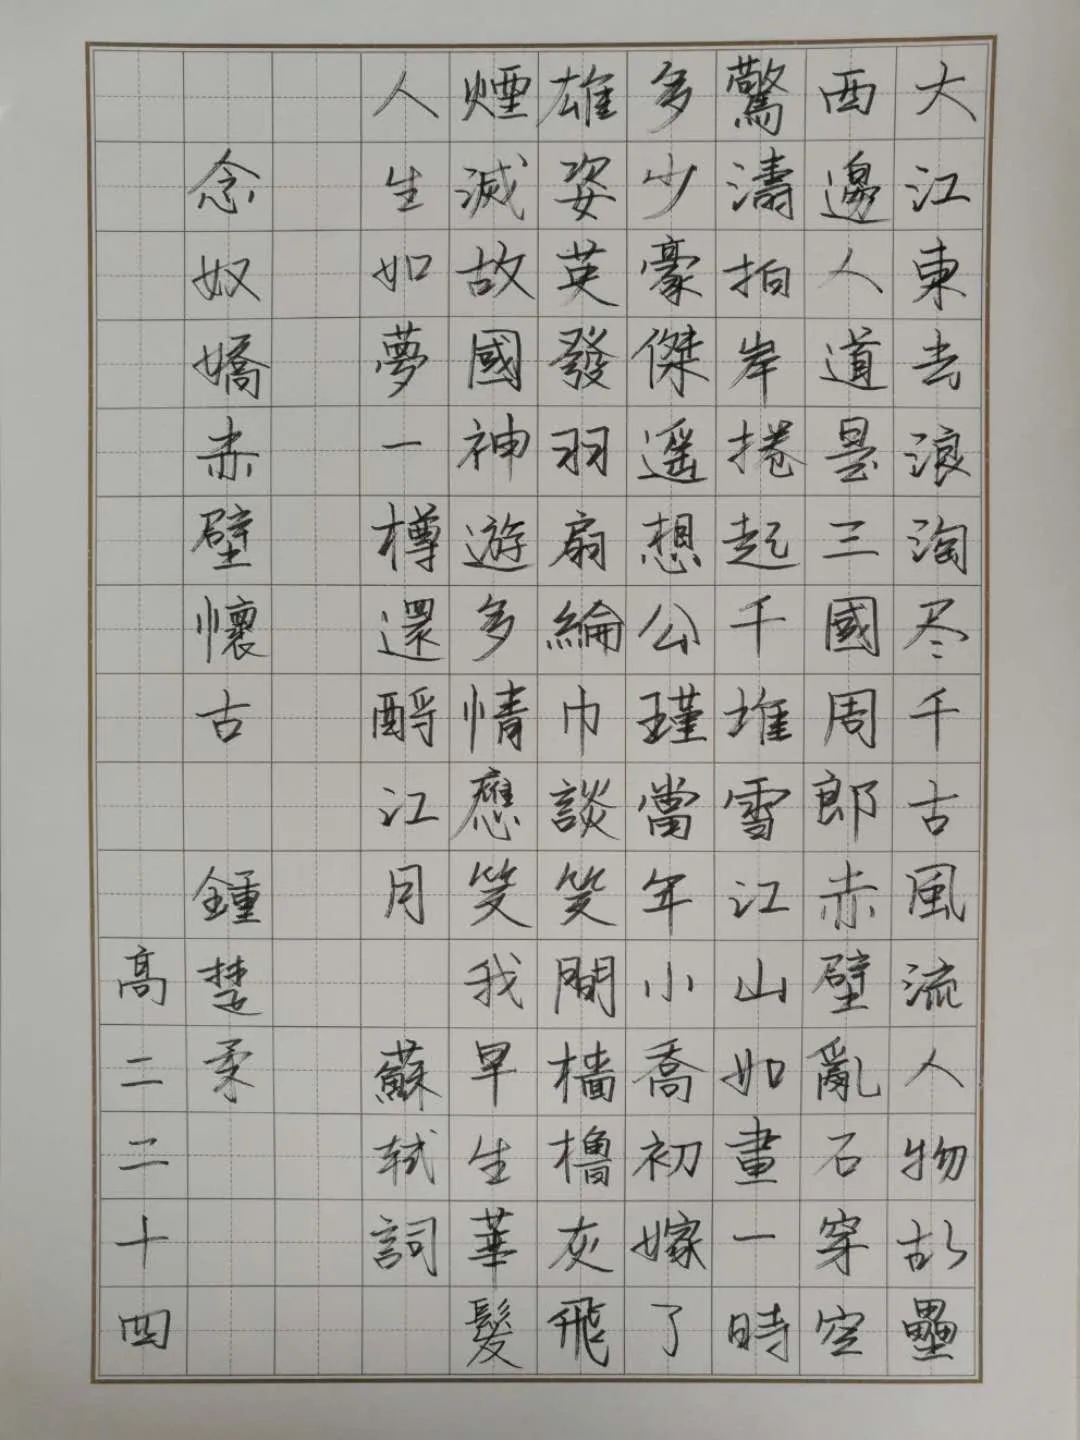 大江東去浪淘尽千古風流人物故壘
西邊人道是三國周郎赤壁亂石穿空
驚濤拍岸捲起千堆雪江山如畫一時
多少豪傑遥想公瑾當年小喬初嫁了
雄姿英發羽扇綸巾談笑間檣櫓灰飛
煙滅故國神遊多情應笑我早生華髮
人生如夢一樽還酹江月 蘇軾詞
念奴嬌赤壁懷古 鍾楚柔
高二二十四